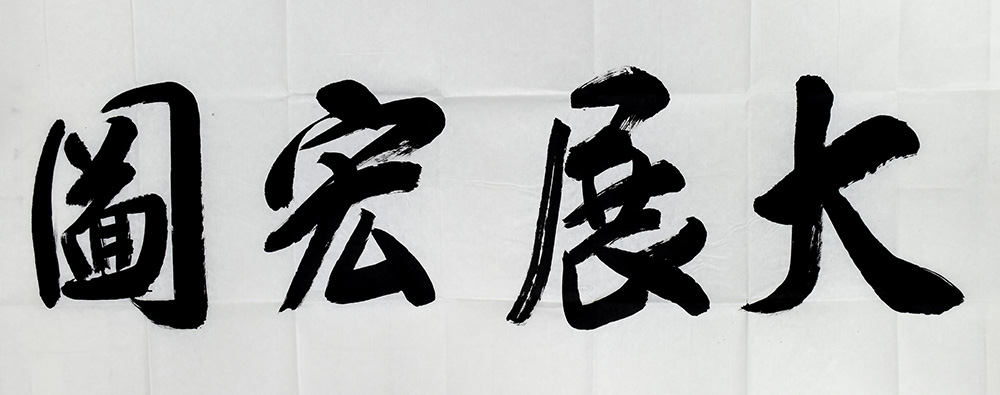 大展宏圖